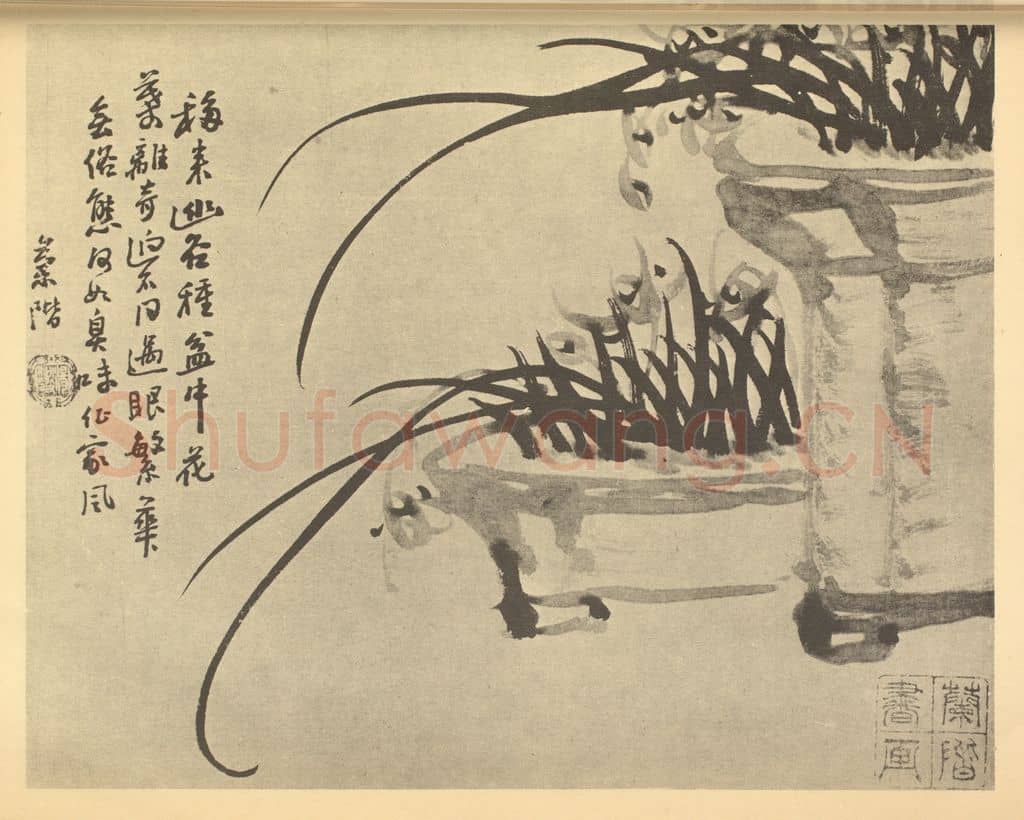 移来幽谷種盆中花
葉離奇迥不同過眼繁華
俗態何如臭味家風
階
蘭階
書画
Shufawang.CN